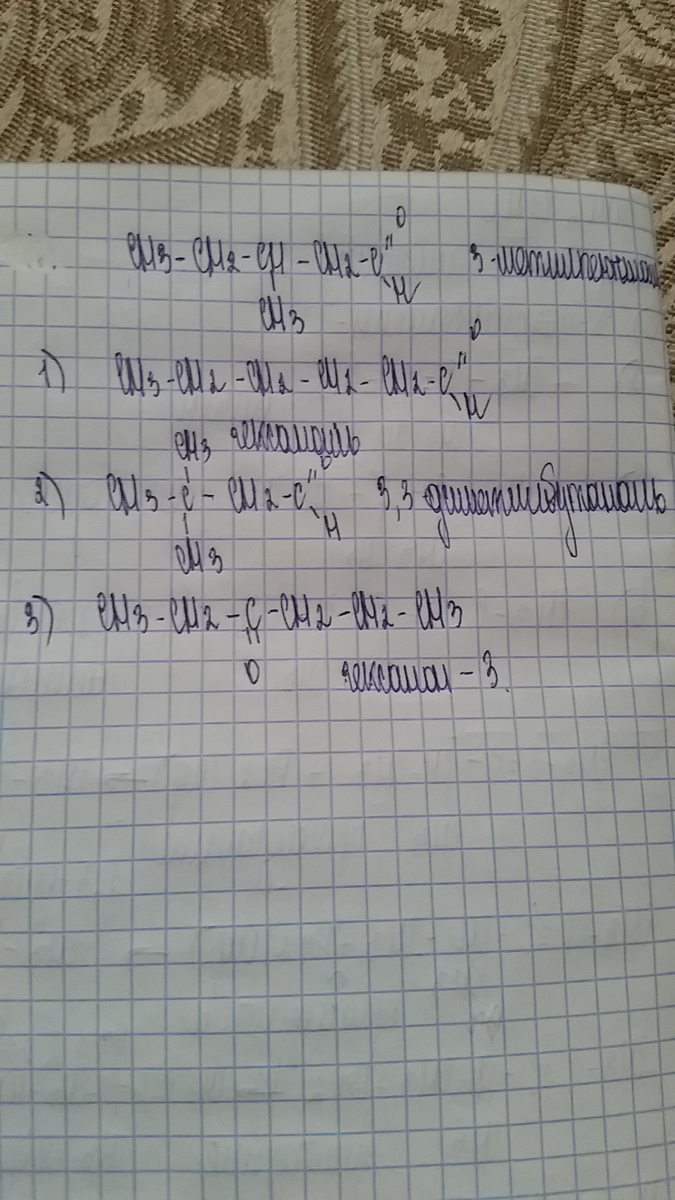 O
CH3 - CH2 - CH - CH2 - C // \ H 3-метилпентаналь
CH3
O
1) CH3 - CH2 - CH2 - CH2 - CH2 - C // \ H
CH3 гексаналь
O
2) CH3 - C - CH2 - C // \ H 3,3 диметилбутаналь
CH3
3) CH3 - CH2 - C - CH2 - CH2 - CH3
O гексанон - 3.